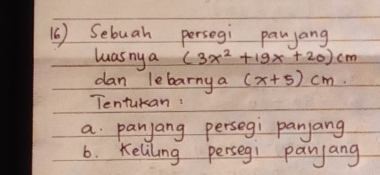 16) Sebuah persegi panjang
luasnya (3x² + 19x + 20) cm
dan lebarnya (x+5) cm.
Tentukan :
a. panjang persegi panjang
b. Keliling persegi panjang